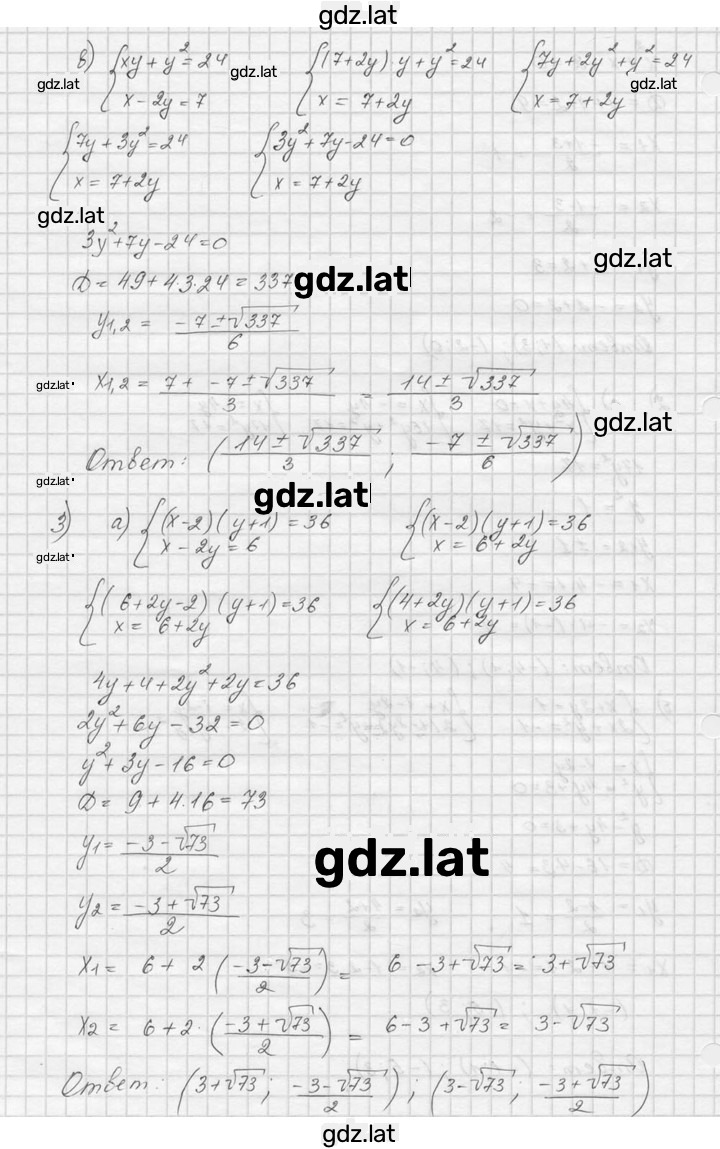 gdz.lat
в) { xy + y² = 24 { (7+2y)·y + y² = 24 { 7y + 2y² + y² = 24
gdz.lat gdz.lat gdz.lat
x - 2y = 7 x = 7+2y x = 7+2y
{ 7y + 3y² = 24 { 3y² + 7y - 24 = 0
x = 7+2y x = 7+2y
gdz.lat
3y² + 7y - 24 = 0
gdz.lat
D = 49 + 4·3·24 = 337
gdz.lat
y1,2 = (-7 ± √337)/6
gdz.lat
x1,2 = (7 + -7 ± √337)/3 = (14 ± √337)/3
gdz.lat
Ответ: ((14 ± √337)/3 ; (-7 ± √337)/6)
gdz.lat
gdz.lat
3) а) { (x-2)(y+1) = 36 { (x-2)(y+1) = 36
x - 2y = 6 x = 6+2y
gdz.lat
{ (6+2y-2)(y+1) = 36 { (4+2y)(y+1) = 36
x = 6+2y x = 6+2y
4y + 4 + 2y² + 2y = 36
2y² + 6y - 32 = 0
y² + 3y - 16 = 0
D = 9 + 4·16 = 73
y1 = (-3 - √73)/2
gdz.lat
y2 = (-3 + √73)/2
x1 = 6 + 2 ((-3 - √73)/2) = 6 - 3 + √73 = 3 + √73
x2 = 6 + 2· ((-3 + √73)/2) = 6 - 3 + √73 = 3 - √73
Ответ: (3 + √73 ; (-3 - √73)/2) ; (3 - √73 ; (-3 + √73)/2)
gdz.lat